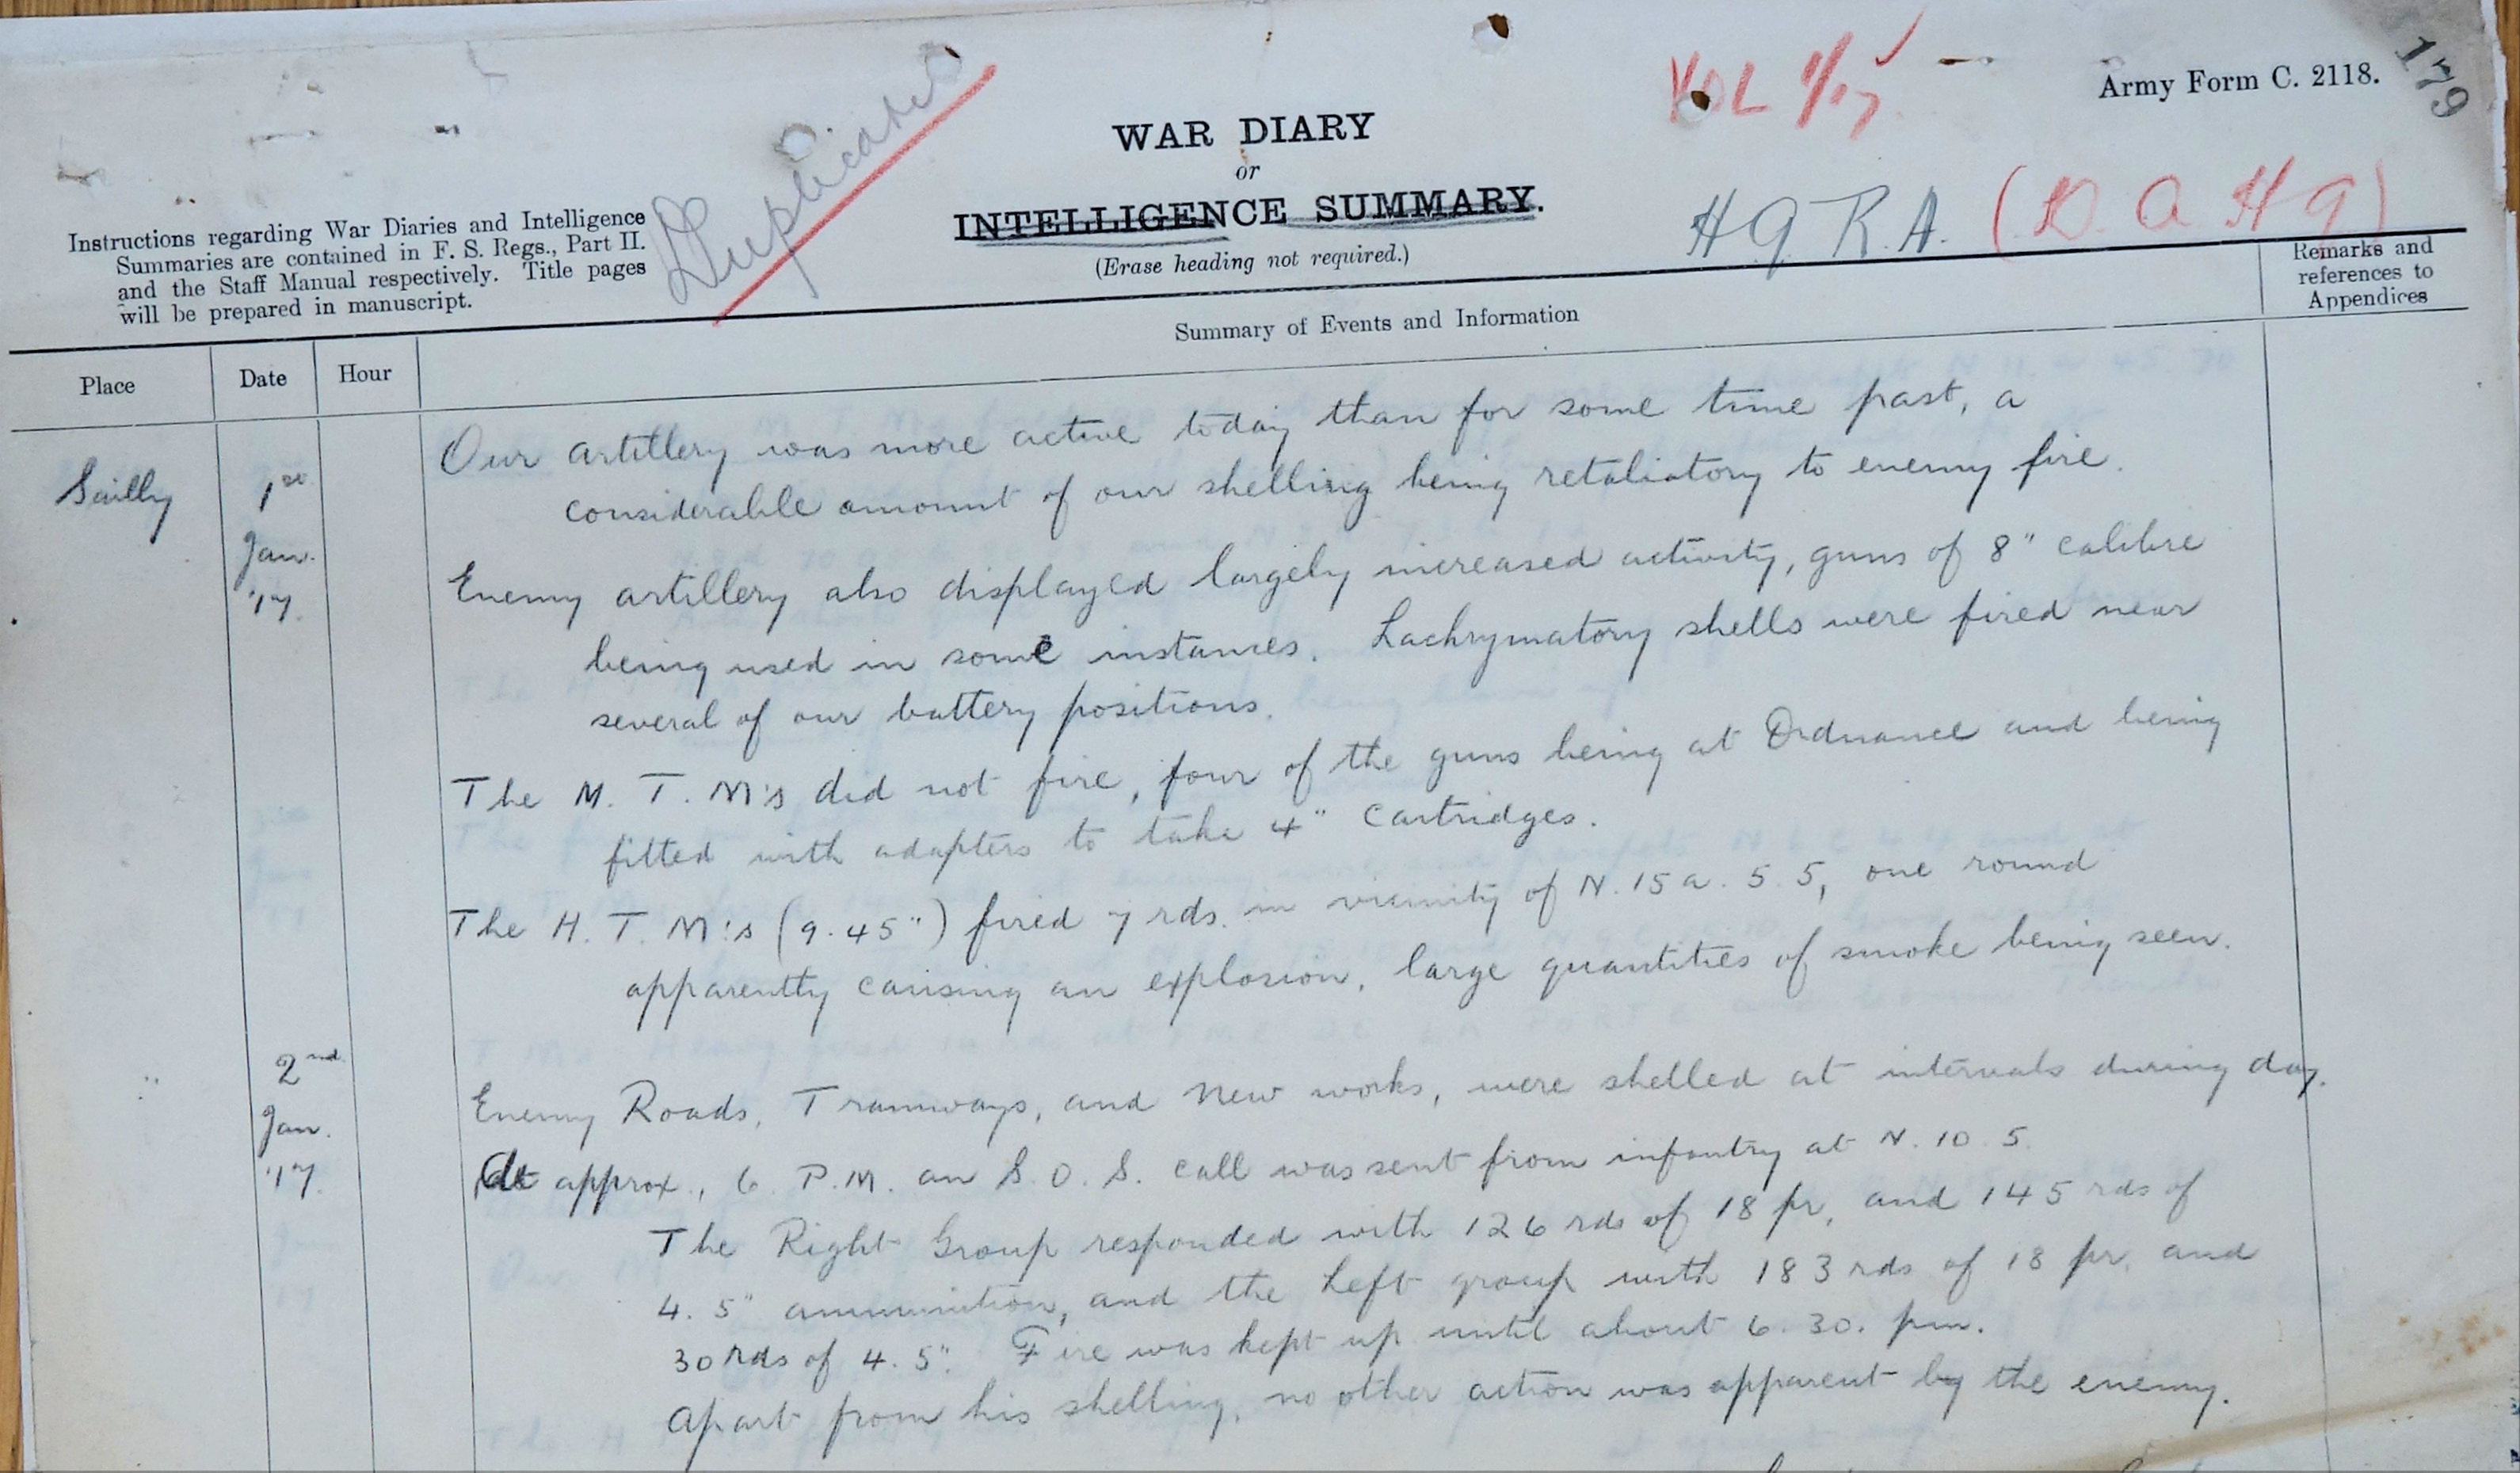 179
VOL 1/17
Army Form C. 2118.
Duplicate
WAR DIARY
or
INTELLIGENCE SUMMARY.
(Erase heading not required.)
H Q R. A. (D. A H Q)
Instructions regarding War Diaries and Intelligence
Summaries are contained in F. S. Regs., Part II.
and the Staff Manual respectively. Title pages
will be prepared in manuscript.
Summary of Events and Information
Remarks and
references to
Appendices
Place
Date
Hour
Sailly
1st
Jan.
'17.
Our artillery was more active today than for some time past, a
considerable amount of our shelling being retaliatory to enemy fire.
Enemy artillery also displayed largely increased activity, guns of 8" calibre
being used in some instances. Lachrymatory shells were fired near
several of our battery positions.
The M. T. M's did not fire, four of the guns being at Ordnance and being
fitted with adapters to take 4" cartridges.
The H. T. M's (9.45") fired 7 rds. in vicinity of N. 15 a. 5.5, one round
apparently causing an explosion, large quantities of smoke being seen.
2nd
Jan.
'17.
Enemy Roads, Tramways, and new works, were shelled at intervals during day.
At approx., 6 P.M. an S.O.S. call was sent from infantry at N. 10. 5.
The Right Group responded with 126 rds of 18 pr, and 145 rds of
4.5" ammunition, and the Left group with 183 rds of 18 pr. and
30 rds of 4.5". Fire was kept up until about 6.30. pm.
Apart from his shelling, no other action was apparent by the enemy.